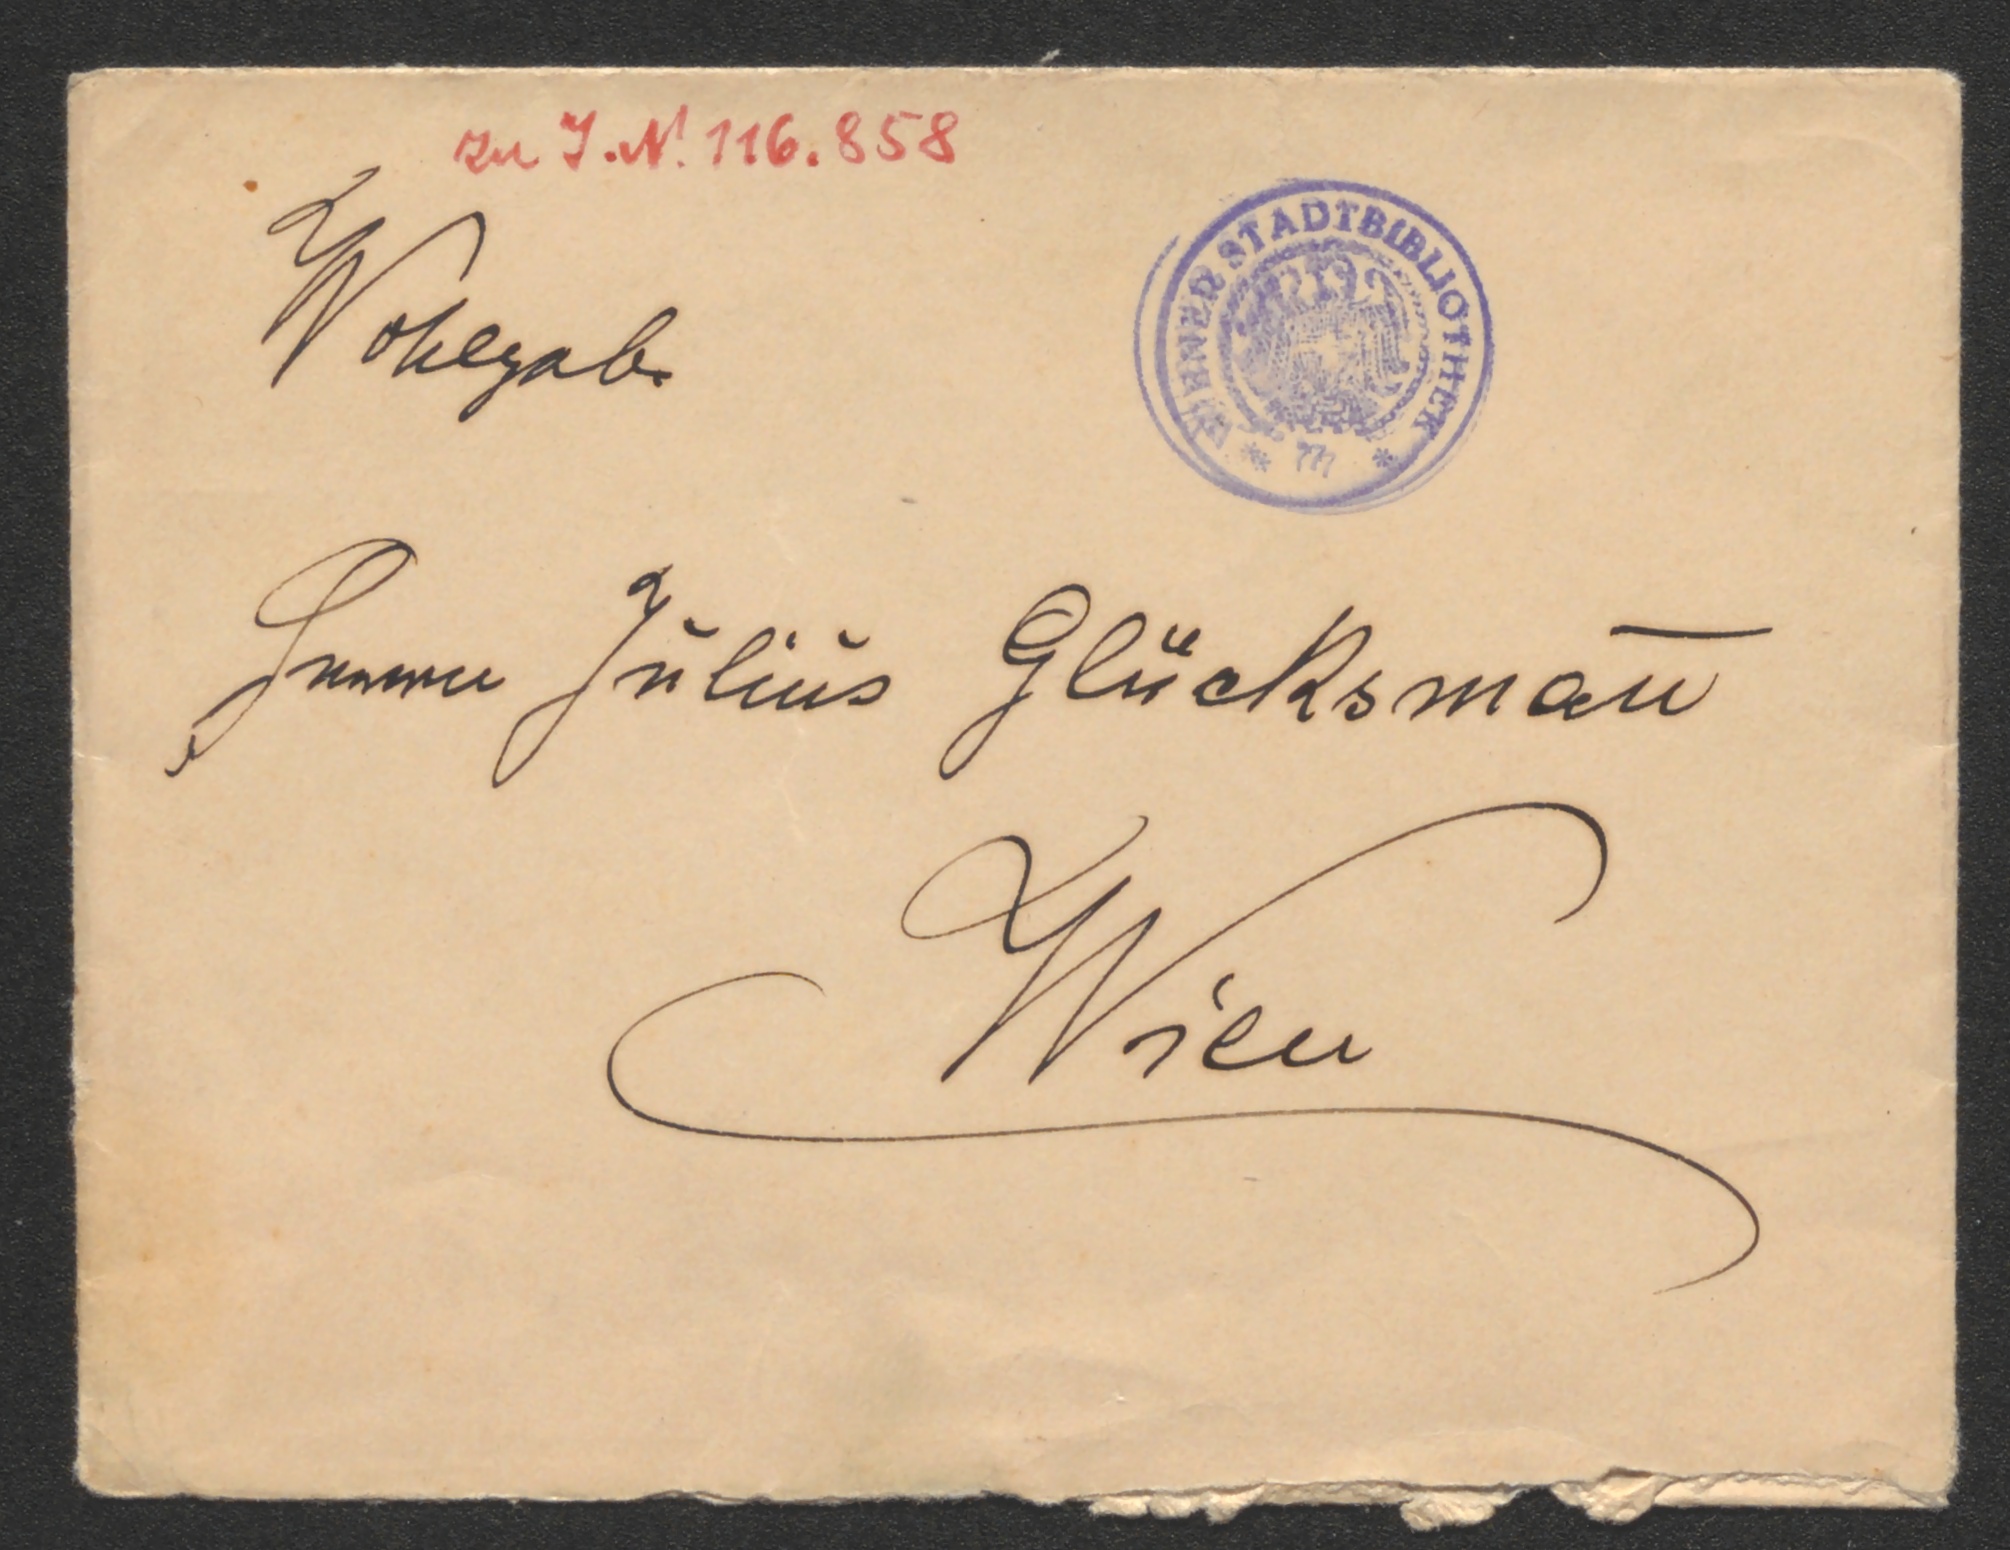 zu I.N. 116.858
WIENER STADTBIBLIOTHEK
Wohlgeb.
Herrn Julius Glücksmañ
Wien